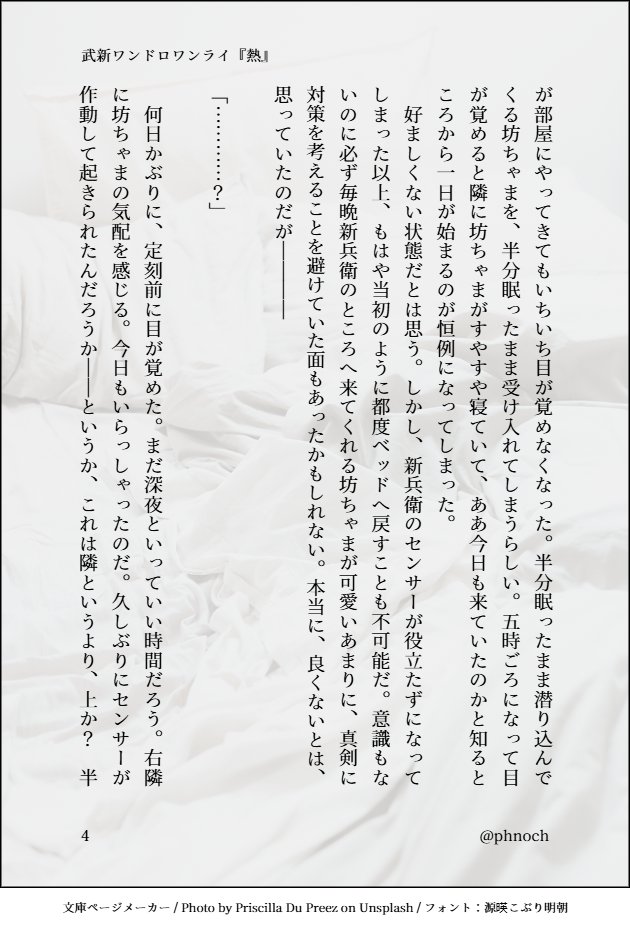 武新ワンドロワンライ『熱』
が部屋にやってきてもいちいち目が覚めなくなった。半分眠ったまま潜り込んで
くる坊ちゃまを、半分眠ったまま受け入れてしまうらしい。五時ごろになって目
が覚めると隣に坊ちゃまがすやすや寝ていて、ああ今日も来ていたのかと知ると
ころから一日が始まるのが恒例になってしまった。
　好ましくない状態だとは思う。しかし、新兵衛のセンサーが役立たずになって
しまった以上、もはや当初のように都度ベッドへ戻すことも不可能だ。意識もな
いのに必ず毎晩新兵衛のところへ来てくれる坊ちゃまが可愛いあまりに、真剣に
対策を考えることを避けていた面もあったかもしれない。本当に、良くないとは、
思っていたのだが――――
「…………？」
　何日かぶりに、定刻前に目が覚めた。まだ深夜といっていい時間だろう。右隣
に坊ちゃまの気配を感じる。今日もいらっしゃったのだ。久しぶりにセンサーが
作動して起きられたんだろうか――というか、これは隣というより、上か？　半
4
@phnoch
文庫ページメーカー / Photo by Priscilla Du Preez on Unsplash / フォント：源暎こぶり明朝